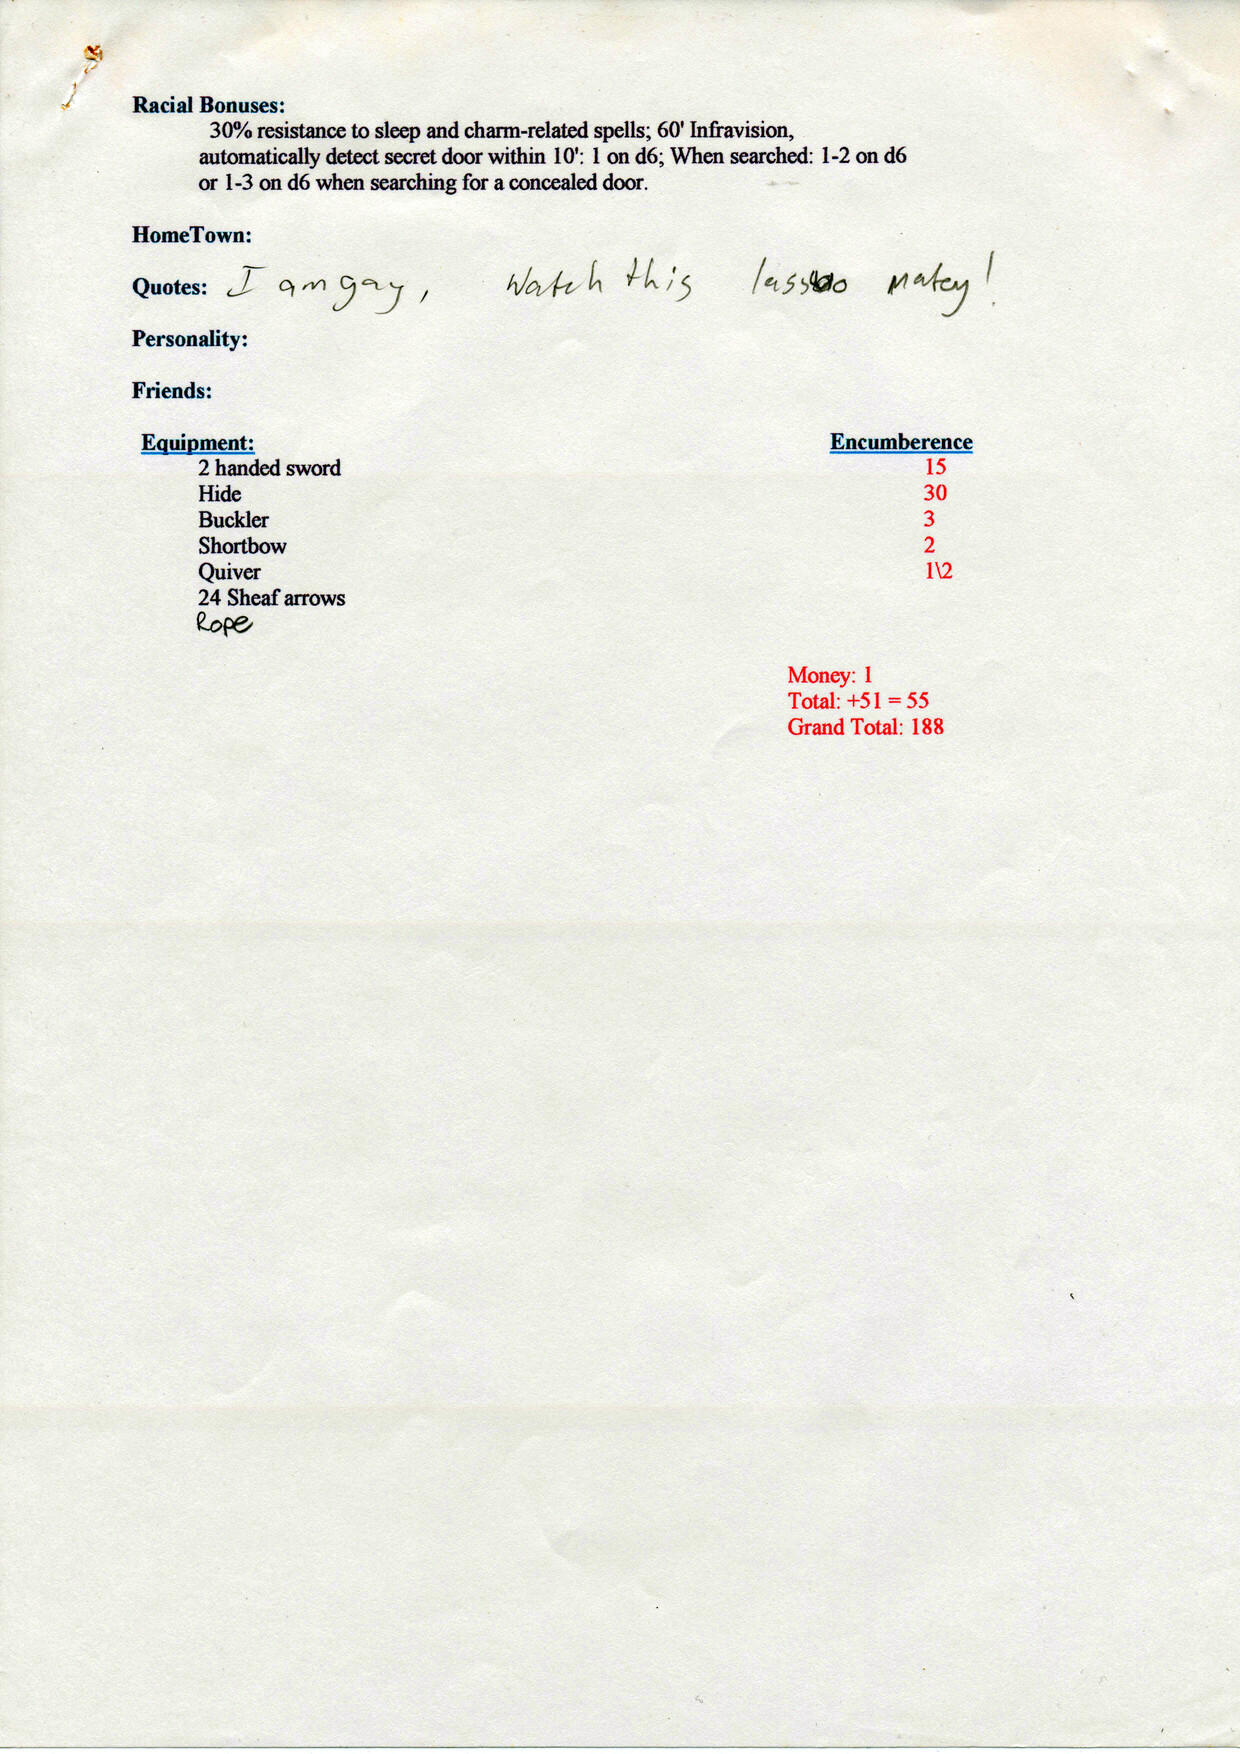 Racial Bonuses:
30% resistance to sleep and charm-related spells; 60' Infravision,
automatically detect secret door within 10': 1 on d6; When searched: 1-2 on d6
or 1-3 on d6 when searching for a concealed door.
HomeTown:
Quotes: I am gay, Watch this lassoo matey!
Personality:
Friends:
Equipment: Encumberence
2 handed sword 15
Hide 30
Buckler 3
Shortbow 2
Quiver 1\2
24 Sheaf arrows
Rope
Money: 1
Total: +51 = 55
Grand Total: 188